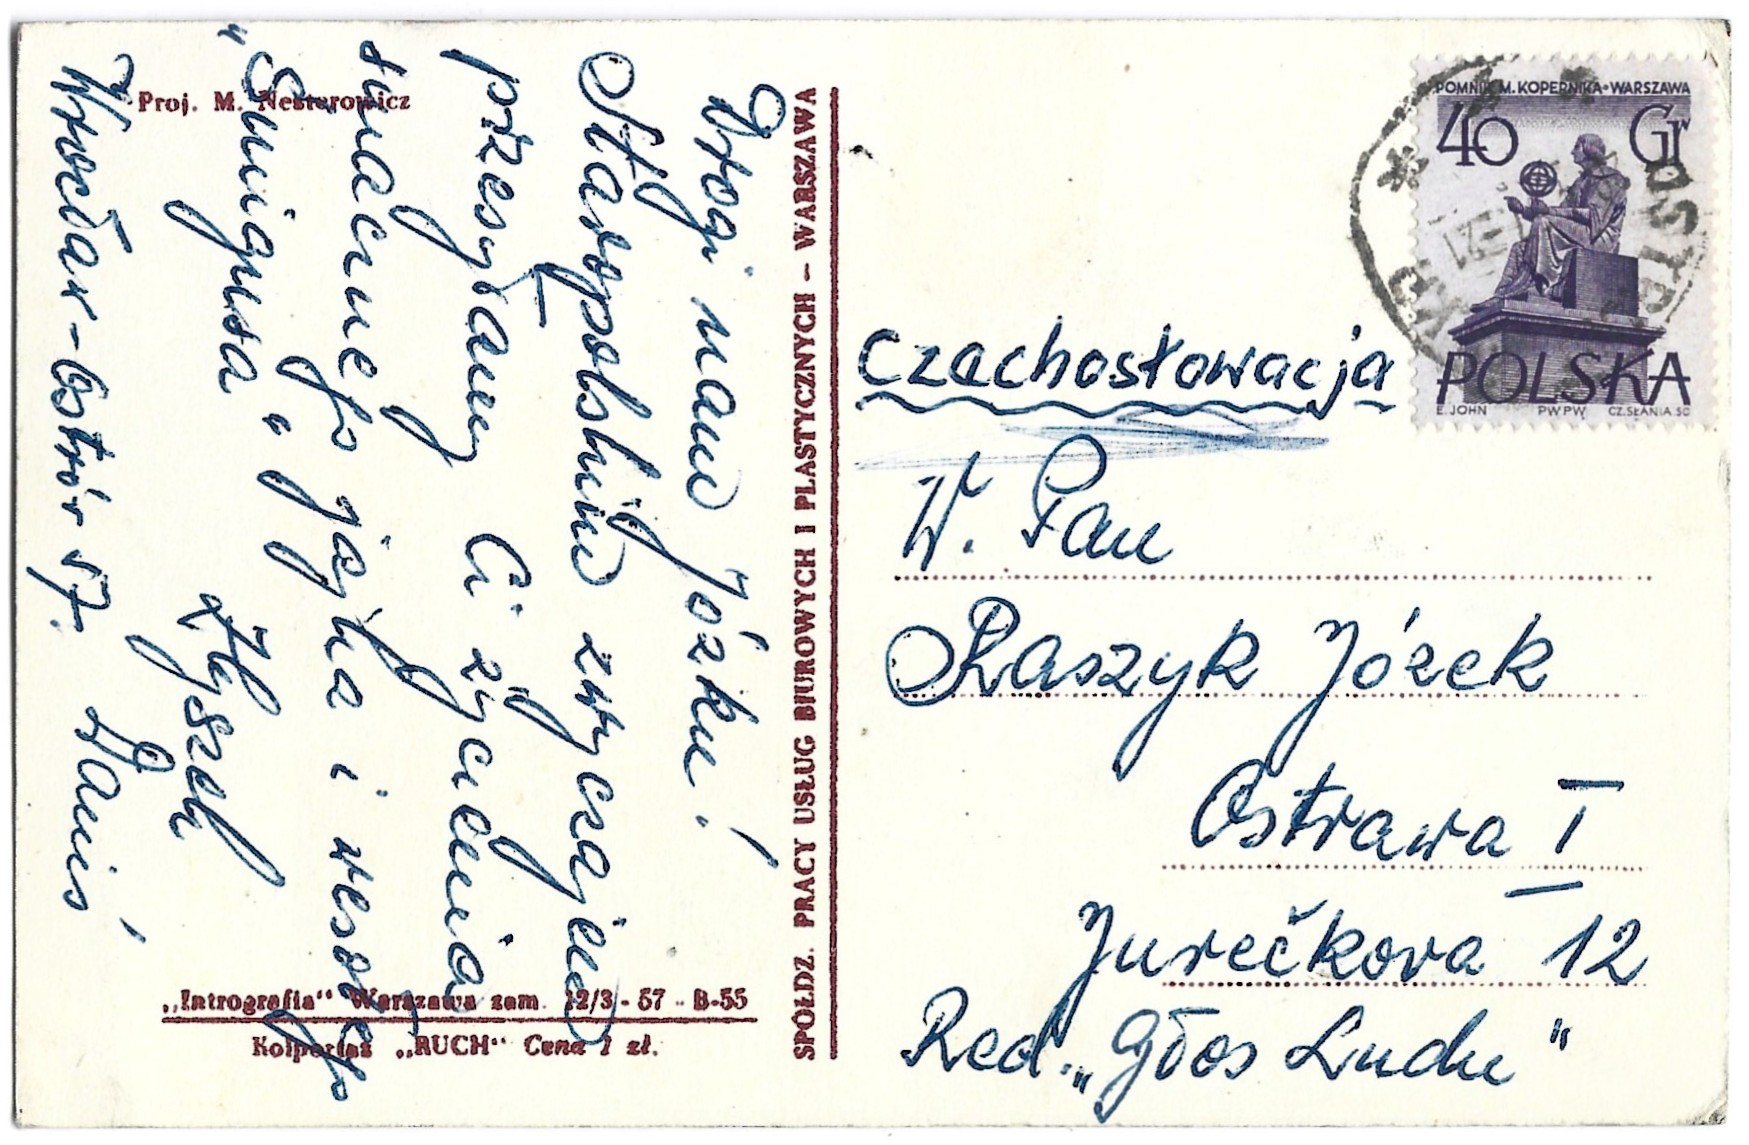 Drogi nam Józku!
Staropolskim zwyczajem
przesyłamy Ci życzenia
smacznego jajka i wesołego
"Śmigusa"
Zbyszek
Janis
Wrocław - Ostrów 57.
Proj. M. Nesterowicz
„Intrografia" Warszawa zam. 12/3 - 57 - B-55
Kolportaż „RUCH" Cena 1 zł.
SPÓŁDZ. PRACY USŁUG BIUROWYCH I PLASTYCZNYCH - WARSZAWA
POMNIK M. KOPERNIKA • WARSZAWA
40 Gr
POLSKA
E. JOHN PWPW CZ.SŁANIA SC
Czechosłowacja
W. Pan
Raszyk Józek
Ostrawa I
Jurečkova 12
Red. „Głos Ludu"